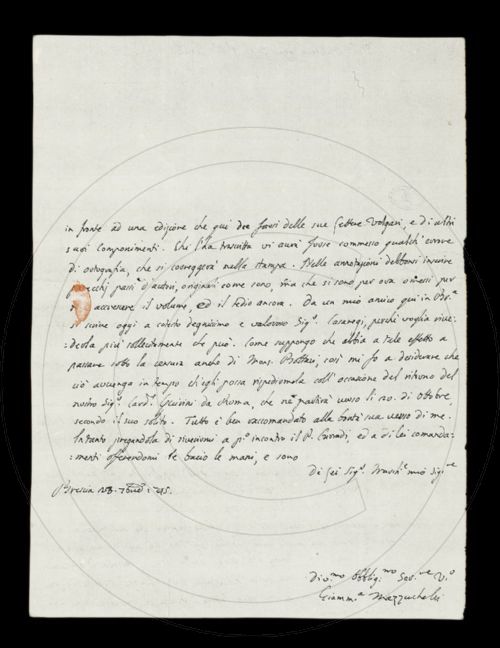 in fronte ad una edizione che qui dee farsi delle sue Lettere Volgari, e di altri
suoi componimenti. Chi l'ha trascritta vi avrà forse commesso qualch' errore
di ortografia, che si correggerà nella stampa. Nelle annotazioni debbonsi inserire
parecchj passi d'autori, originari come sono, ma che si sono per ora omessi per
accrescere il volume, ed il tedio ancora. Da un mio amico qui in Bra
si scrive oggi a cotesto degnissimo e valoroso Sig.r Casaregi, perchè voglia rive:
:derla più sollecitamente che può. Come suppongo che abbia a tale effetto a
passare sotto la censura anche di Mons. Bottari, così mi fo a desiderare che
ciò avvenga in tempo ch'egli possa rispedirmela coll' occasione del ritorno del
nostro Sig.r Card. Querini da Roma, che ne partirà verso li 20. di Ottobre,
secondo il suo solito. Tutto è ben raccomandato alla bontà sua verso di me.
Intanto pregandola di riverirmi a p.o incontro il P. Corradi, ed a di lei comanda:
:menti offerendomi le bacio le mani, e sono
Di Lei Sig.r mio
Brescia 745.
Div.mo Obblig.mo Ser.re V.o
Giamm.a Mazzuchelli